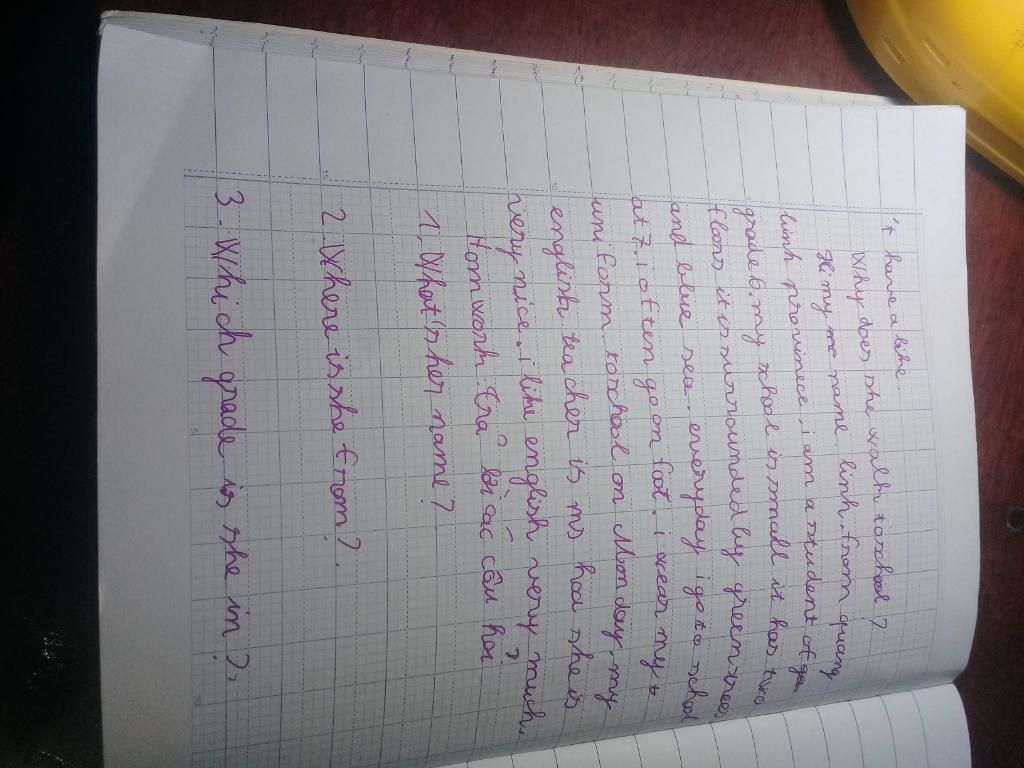 't have a bike
Why does she walk to school?
Hi my name linh. from quang
linh provinece, i am a student of
grade 6. my school is small it has two
floors it is surrounded by green trees
and blue sea. everyday i go to school
at 7. i often go on foot. i wear my
uniform to school on Monday. my
english teacher is ms hoa she is
very nice. i like english very much.
Homwork trả lời các câu hỏi
1, What's her name?
2. Where is she from?
3. Which grade is she in?